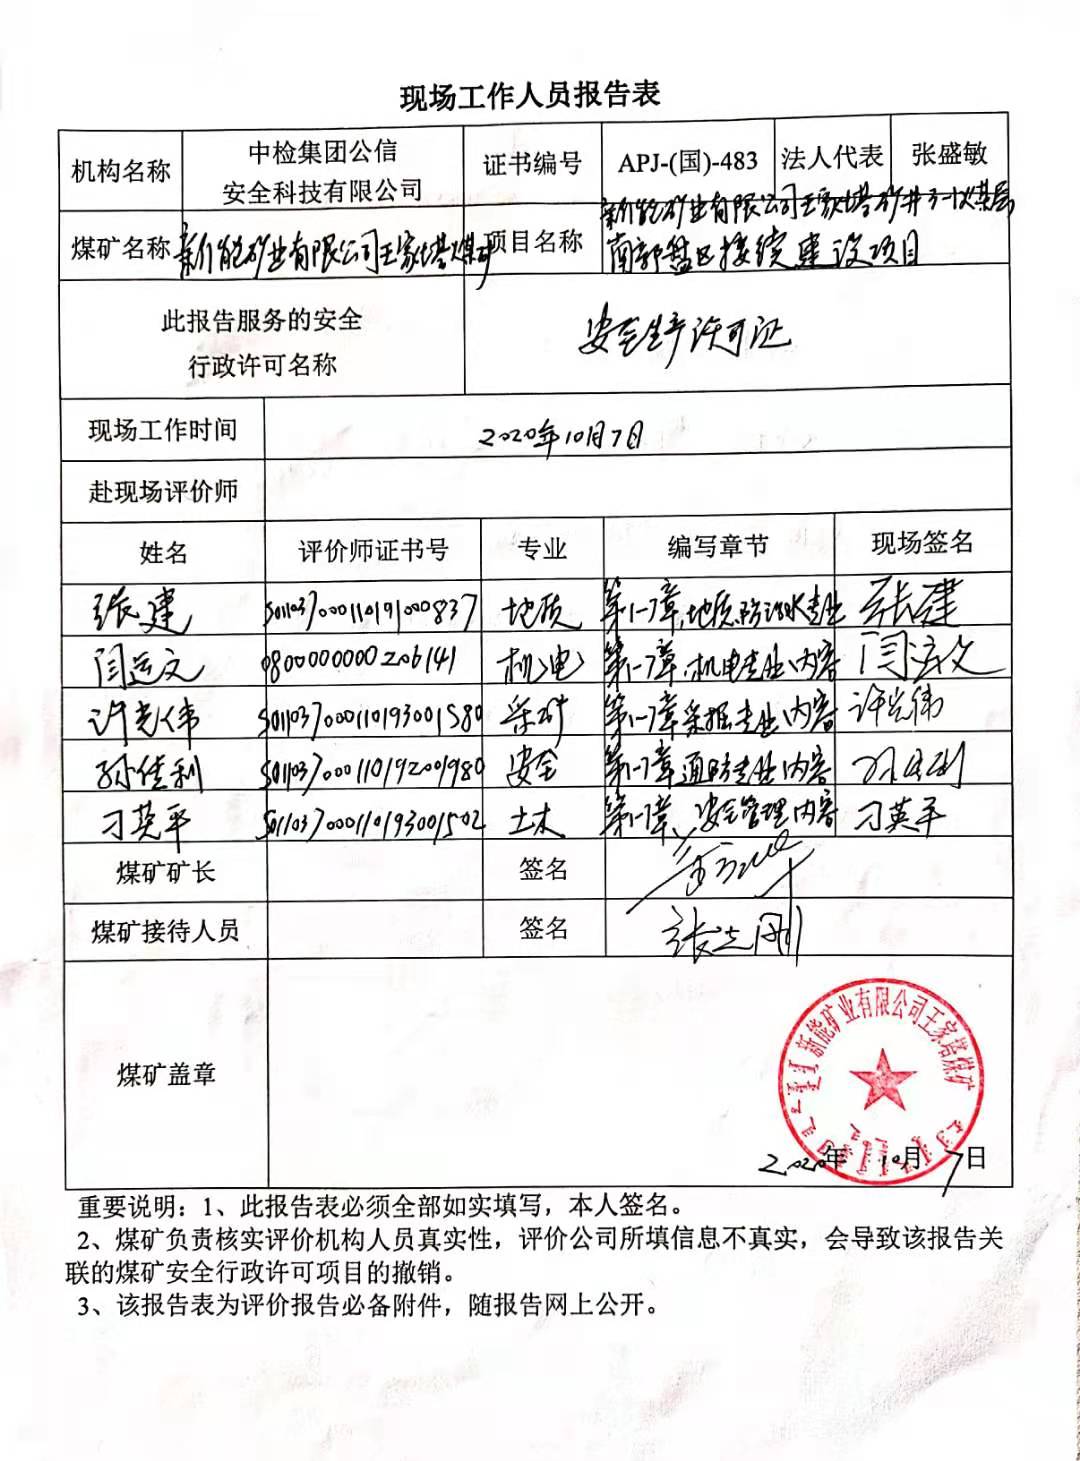 现场工作人员报告表
机构名称 中检集团公信安全科技有限公司 证书编号 APJ-(国)-483 法人代表 张盛敏
煤矿名称 新能矿业有限公司王家塔煤矿 项目名称 新能矿业有限公司王家塔矿井3-1煤层南部盘区接续建设项目
此报告服务的安全
行政许可名称 安全生产许可证
现场工作时间 2020年10月7日
赴现场评价师
姓名 评价师证书号 专业 编写章节 现场签名
张建 S011037000110191000837 地质 第1-7章,地质、防治水专业 张建
闫运文 0800000000206141 机电 第1-7章,机电专业内容 闫运文
许光伟 S011037000110193001580 采矿 第1-7章采掘专业内容 许光伟
孙佳利 S011037000110192001980 安全 第1-7章通防专业内容 孙佳利
刁英平 S011037000110193001502 土木 第1-7章,安全管理内容 刁英平
煤矿矿长 签名
煤矿接待人员 签名 张志刚
煤矿盖章
新能矿业有限公司王家塔煤矿
2020年10月7日
重要说明：1、此报告表必须全部如实填写，本人签名。
2、煤矿负责核实评价机构人员真实性，评价公司所填信息不真实，会导致该报告关
联的煤矿安全行政许可项目的撤销。
3、该报告表为评价报告必备附件，随报告网上公开。